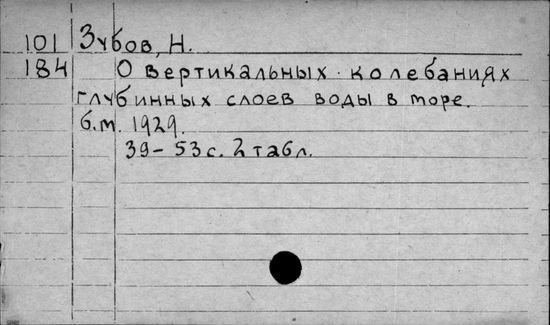 101 Зубов, Н.
184 О вертикальных колебаниях
глубинных слоев воды в море.
б.м. 1929.
39-53 с. 2 табл.